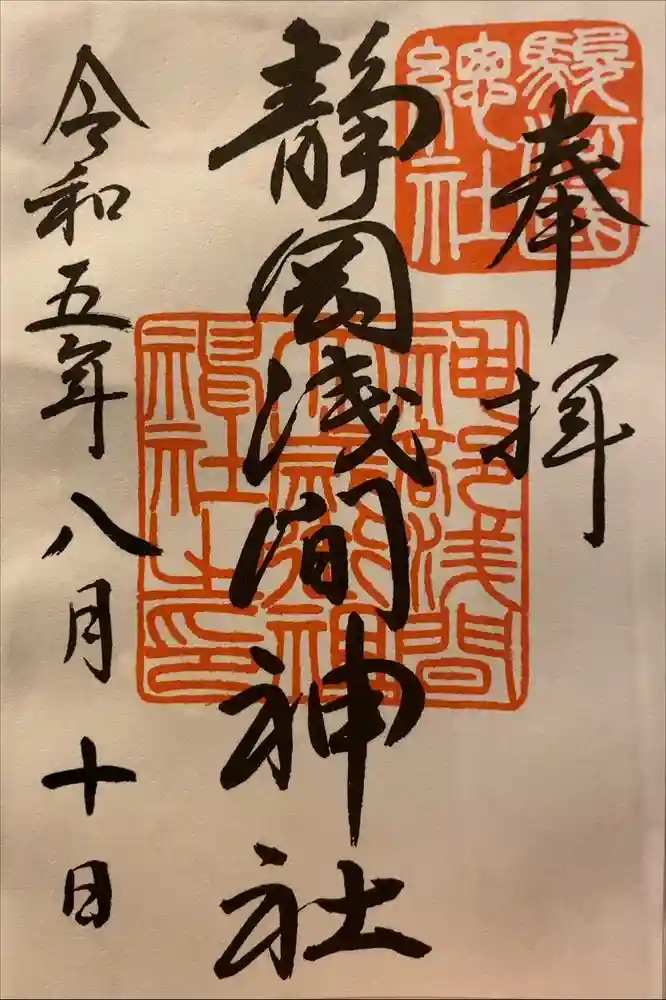 奉拝
駿河國
總社
静岡浅間神社
神部浅間
大歳御祖
神社之印
令和五年八月十日